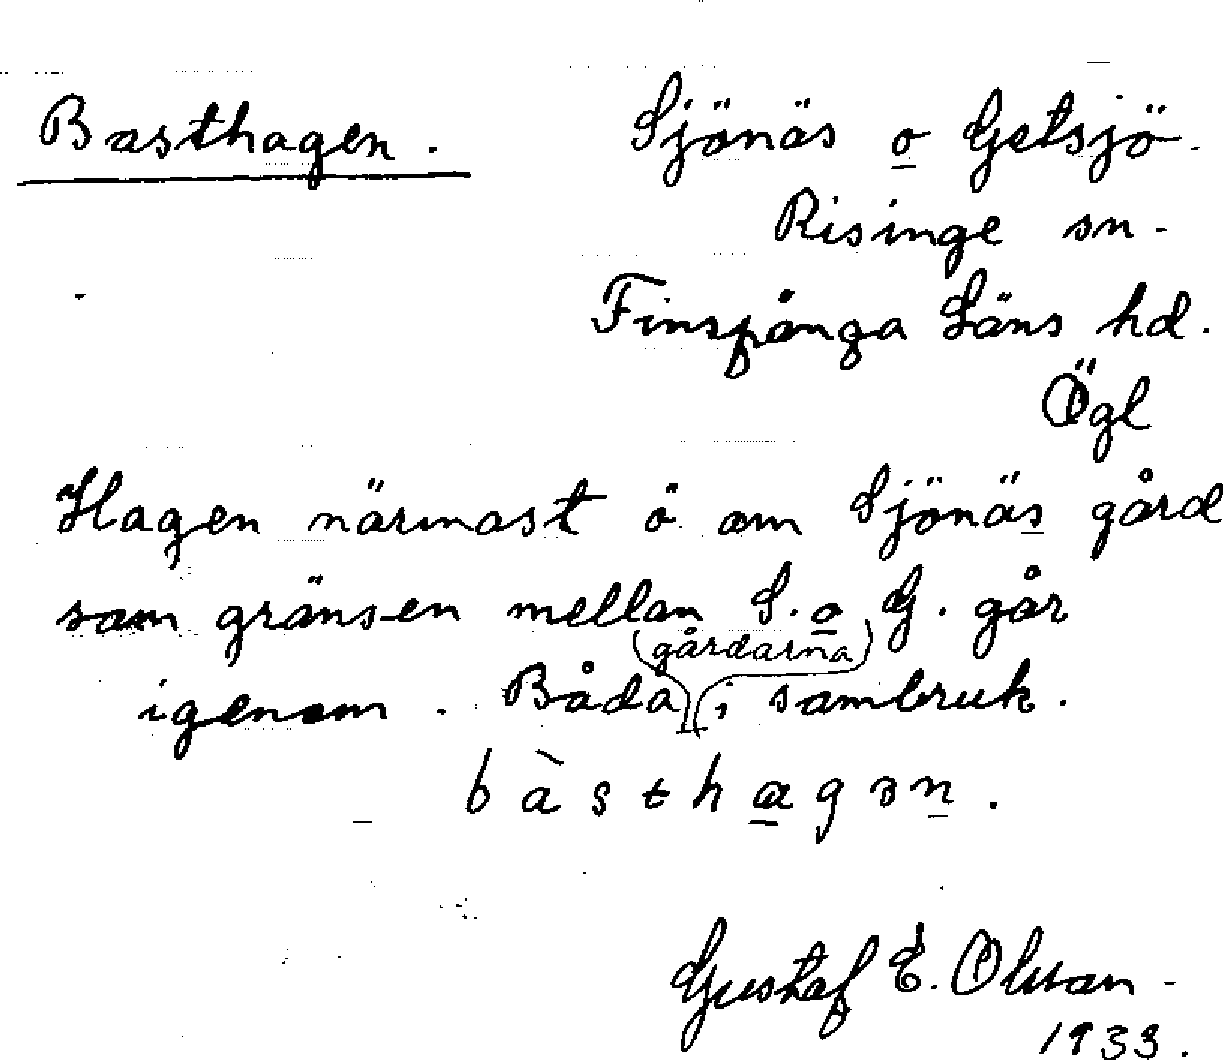 Basthagen. Sjönäs o Getsjö.
Risinge sn.
Finspånga Läns hd.
Ögl
Hagen närmast ö. om Sjönäs gård
som gränsen mellan S. o G. går
(gårdarna)
igenom. Båda i sambruk.
bàsthagən.
Gustaf E. Olsson.
1933.